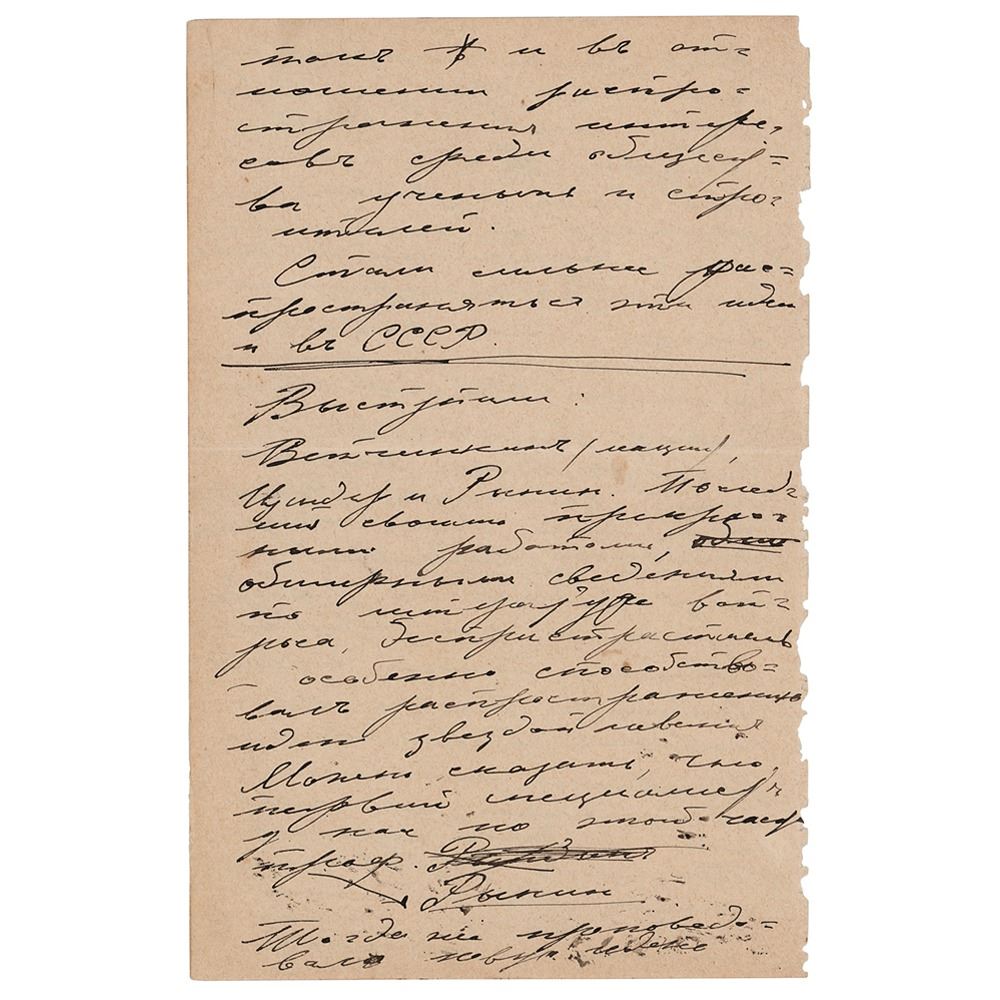 и въ от=
ношении распро=
странения интере=
совъ среди общест=
ва ученыхъ и строи=
ителей.
Стали сильнее рас=
пространяться эти идеи
и въ СССР.
Выступили:
Ветчинкинъ
Цандер и Рынин. Послед=
ний своими прекрас=
ными работами,
обширными сведениями
по литературе воп=
роса, беспристрастием
особенно способство=
валъ распространению
идеи звездоплавания
Можно сказать, что,
первый специалист
у нас по этой части
проф.
Рынин
Тогда же проповедо=
валъ новую идею